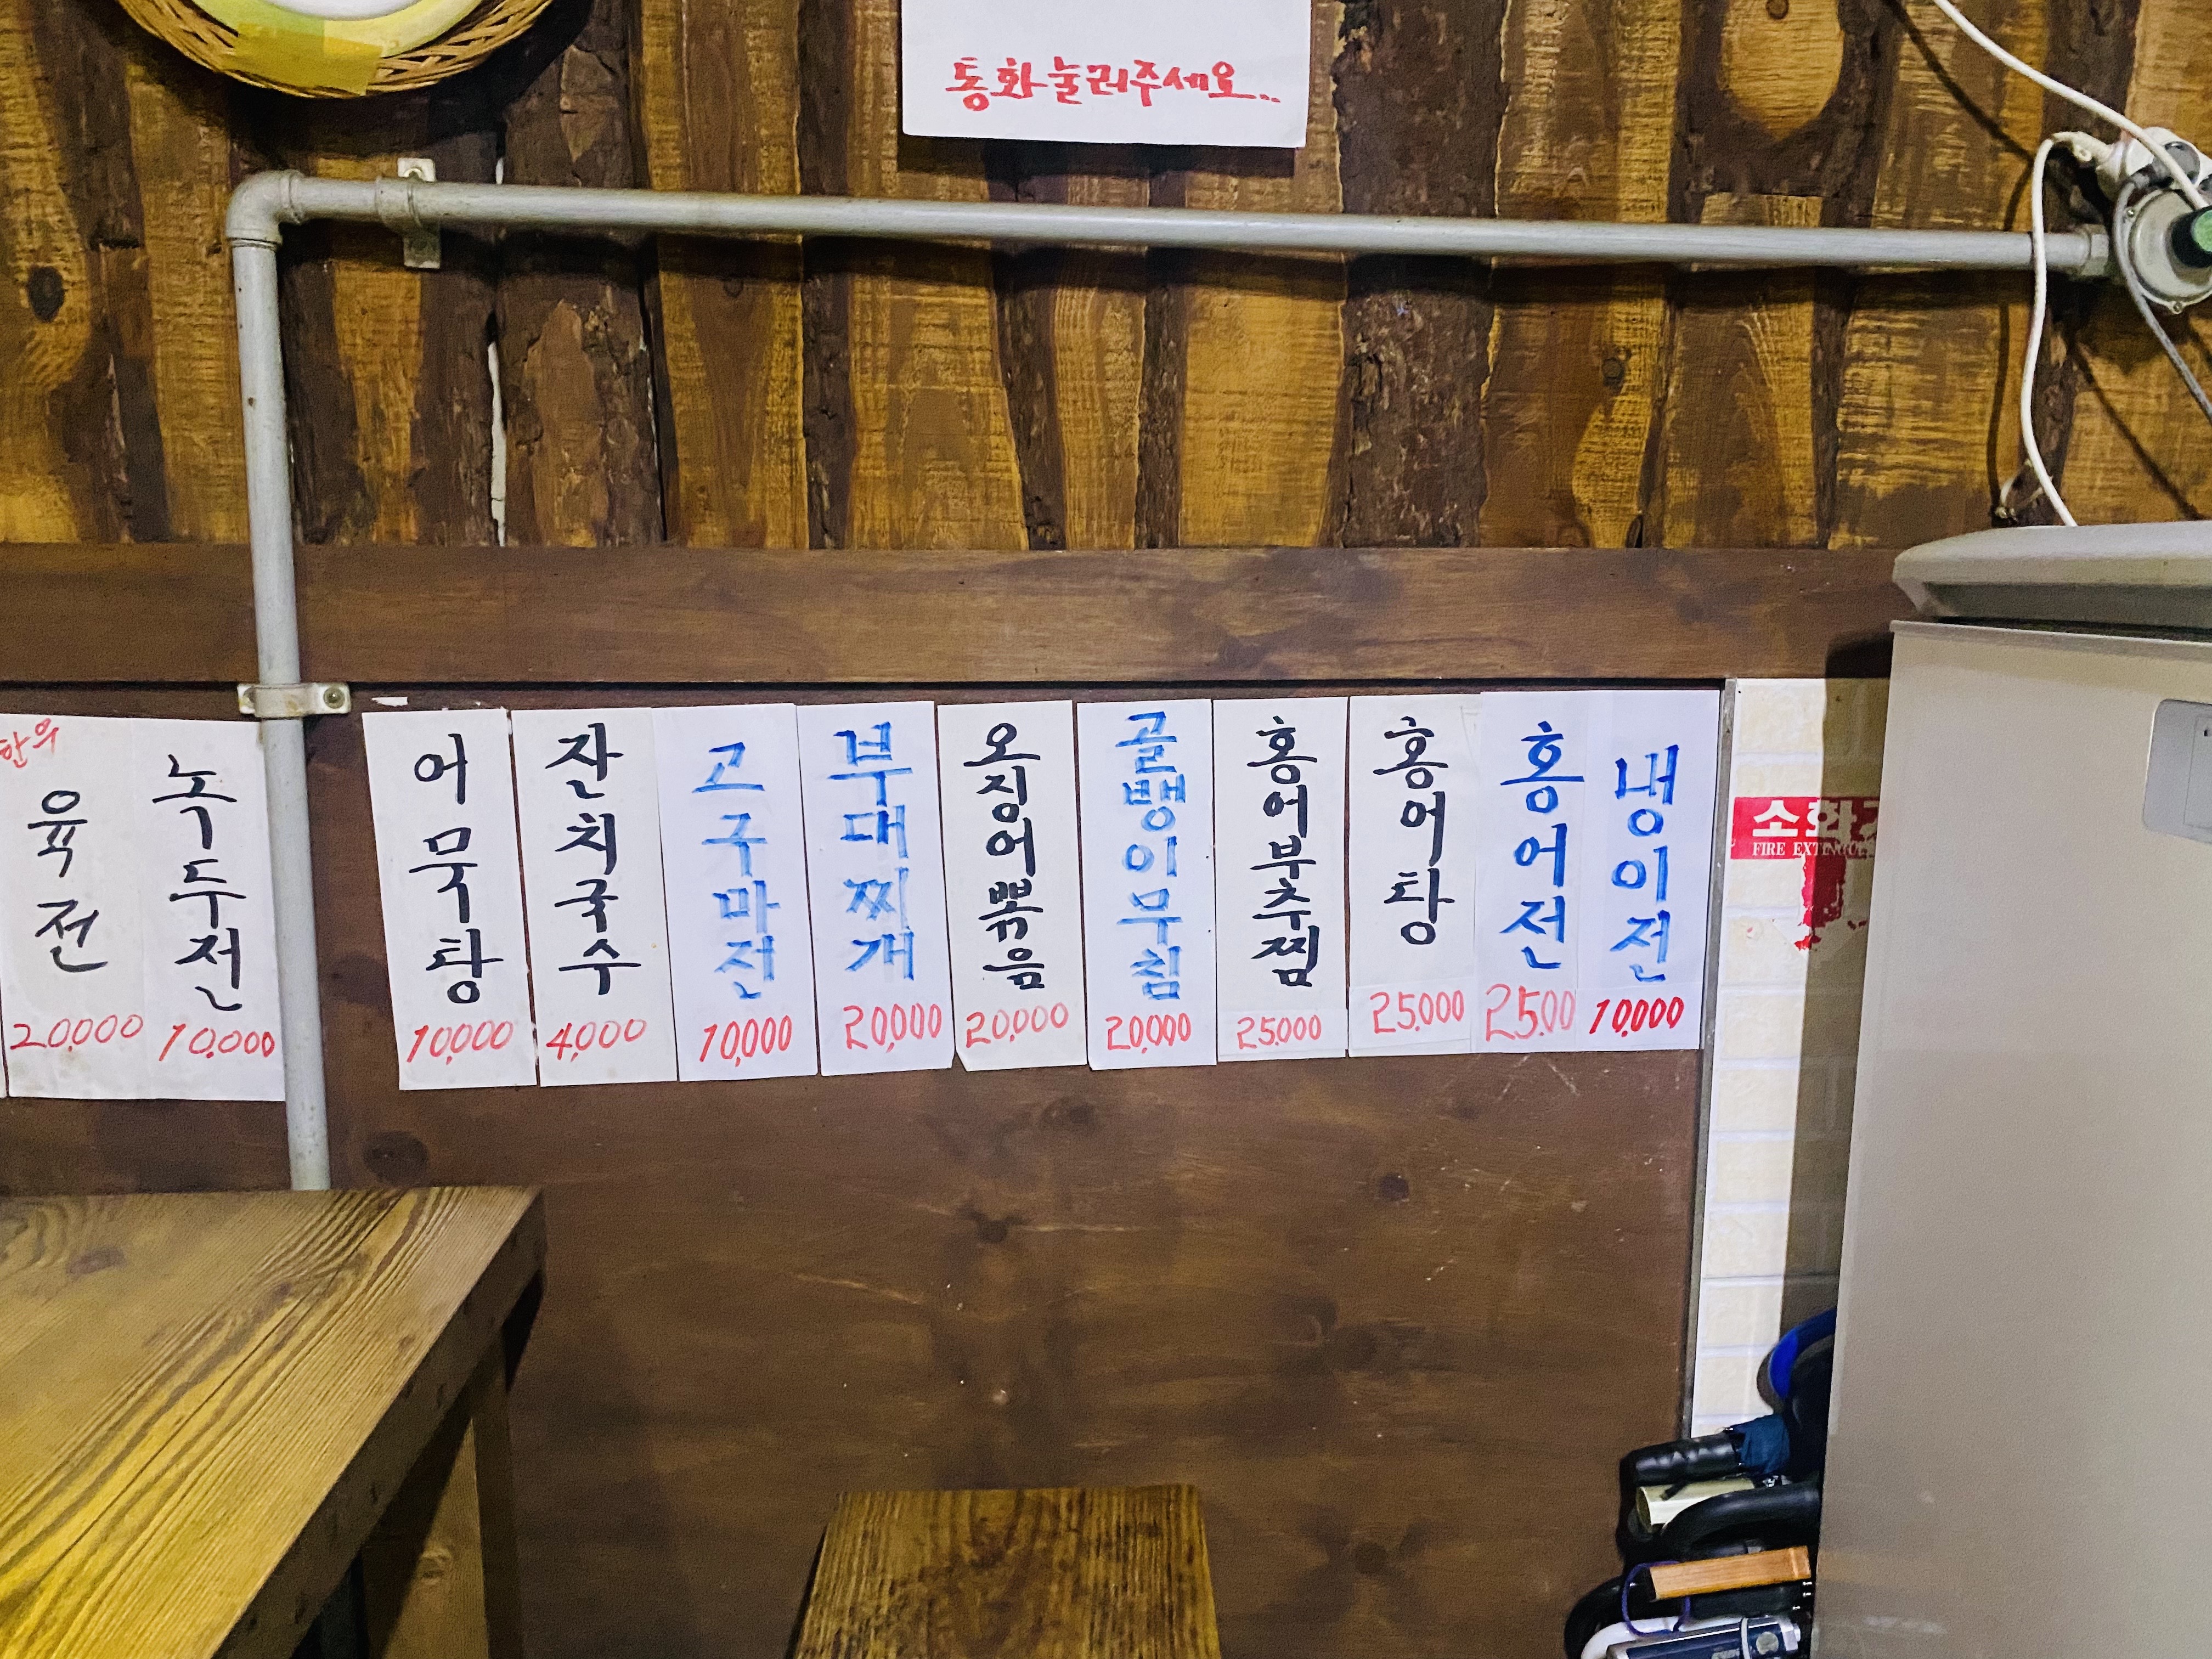 통화눌러주세요..
한우
육전
20,000
녹두전
10,000
어묵탕
10,000
잔치국수
4,000
고구마전
10,000
부대찌개
20,000
오징어볶음
20,000
골뱅이무침
20,000
홍어부추찜
25,000
홍어탕
25,000
홍어전
25,00
냉이전
10,000
소화
FIRE